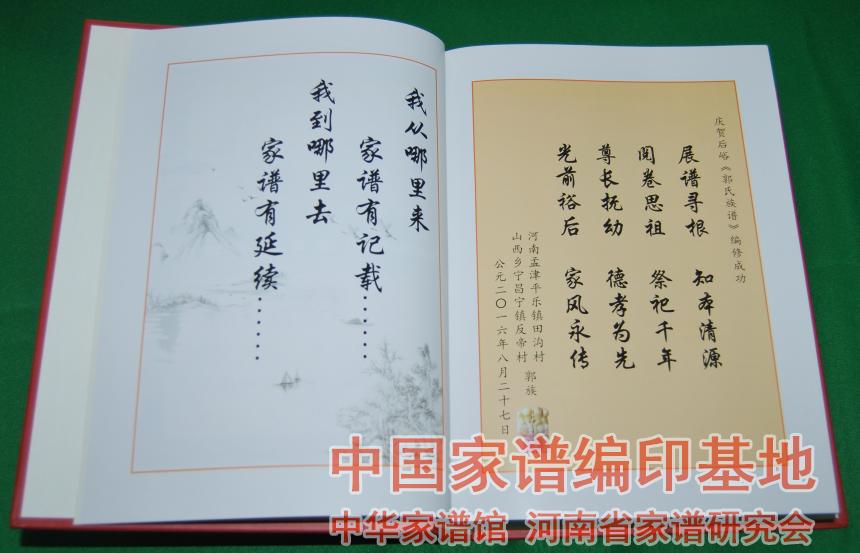 我从哪里来
家谱有记载……
我到哪里去
家谱有延续……
庆贺后峪《郭氏族谱》编修成功
展谱寻根 知本清源
阅卷思祖 祭祀千年
尊长抚幼 德孝为先
光前裕后 家风永传
河南孟津平乐镇田沟村
山西乡宁昌宁镇反帝村 郭族
公元二〇一六年八月二十七日
中国家谱编印基地
中华家谱馆 河南省家谱研究会